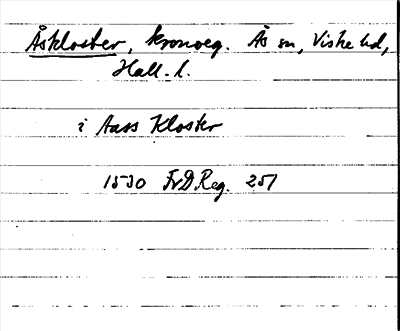 Åskloster, kronoeg. Ås sn, Viske hd,
Hall. l.
i Aass Kloster
1530 FrD.Reg. 251